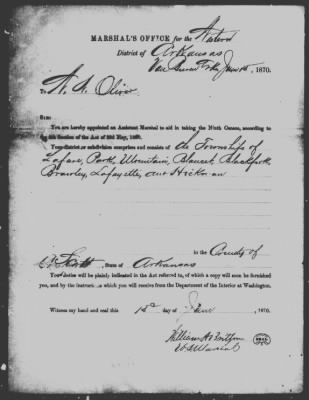 MARSHAL'S OFFICE for the Western
District of Arkansas
Van Buren Ark June 1st, 1870.
To
SIR:
You are hereby appointed an Assistant Marshal to aid in taking the Ninth Census, according to
the Section of the Act of 23d May, 1850.
Your district or subdivision comprises and consists of the Township of
Park, Mountain, Blackfork
Lafayette, and Hickman
in the County of
Scott, State of Arkansas
Your duties will be plainly indicated in the Act referred to, of which a copy will soon be furnished
you, and by the instructions which you will receive from the Department of the Interior at Washington.
Witness my hand and seal this 1st day of June, 1870.
William A Britton
US Marshal
SEAL